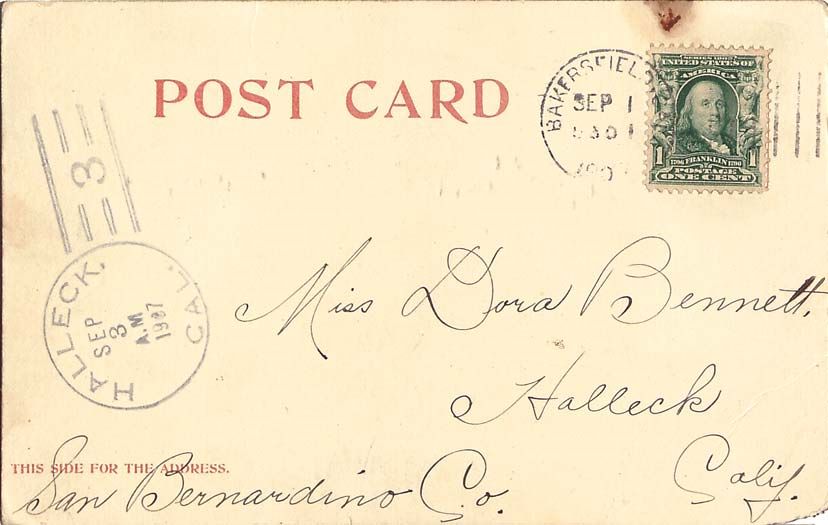 POST CARD
BAKERSFIELD
SEP 1
SERIES 1902
UNITED STATES OF
AMERICA
1 1796 FRANKLIN 1790
POSTAGE
ONE CENT
3
HALLECK, CAL.
SEP
3
A.M.
1907
Miss Dora Bennett,
Halleck
THIS SIDE FOR THE ADDRESS.
San Bernardino Co. Calif.